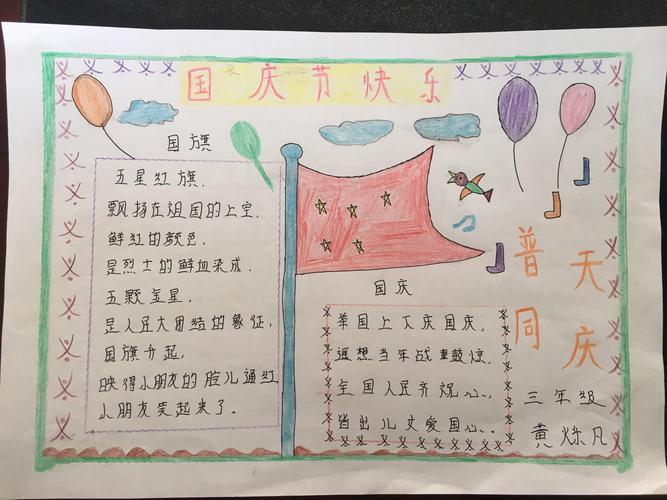 国庆节快乐
国旗
五星红旗.
飘扬在祖国的上空.
鲜红的颜色.
是烈士的鲜血染成.
五颗金星.
是人民大团结的象征,
国旗升起,
映得小朋友的脸儿通红
小朋友笑起来了.
国庆
举国上下庆国庆,
遥想当年战鼓惊.
全国人民齐祝心,
出儿女爱国心..
普天
同庆
三年级
黄烁凡